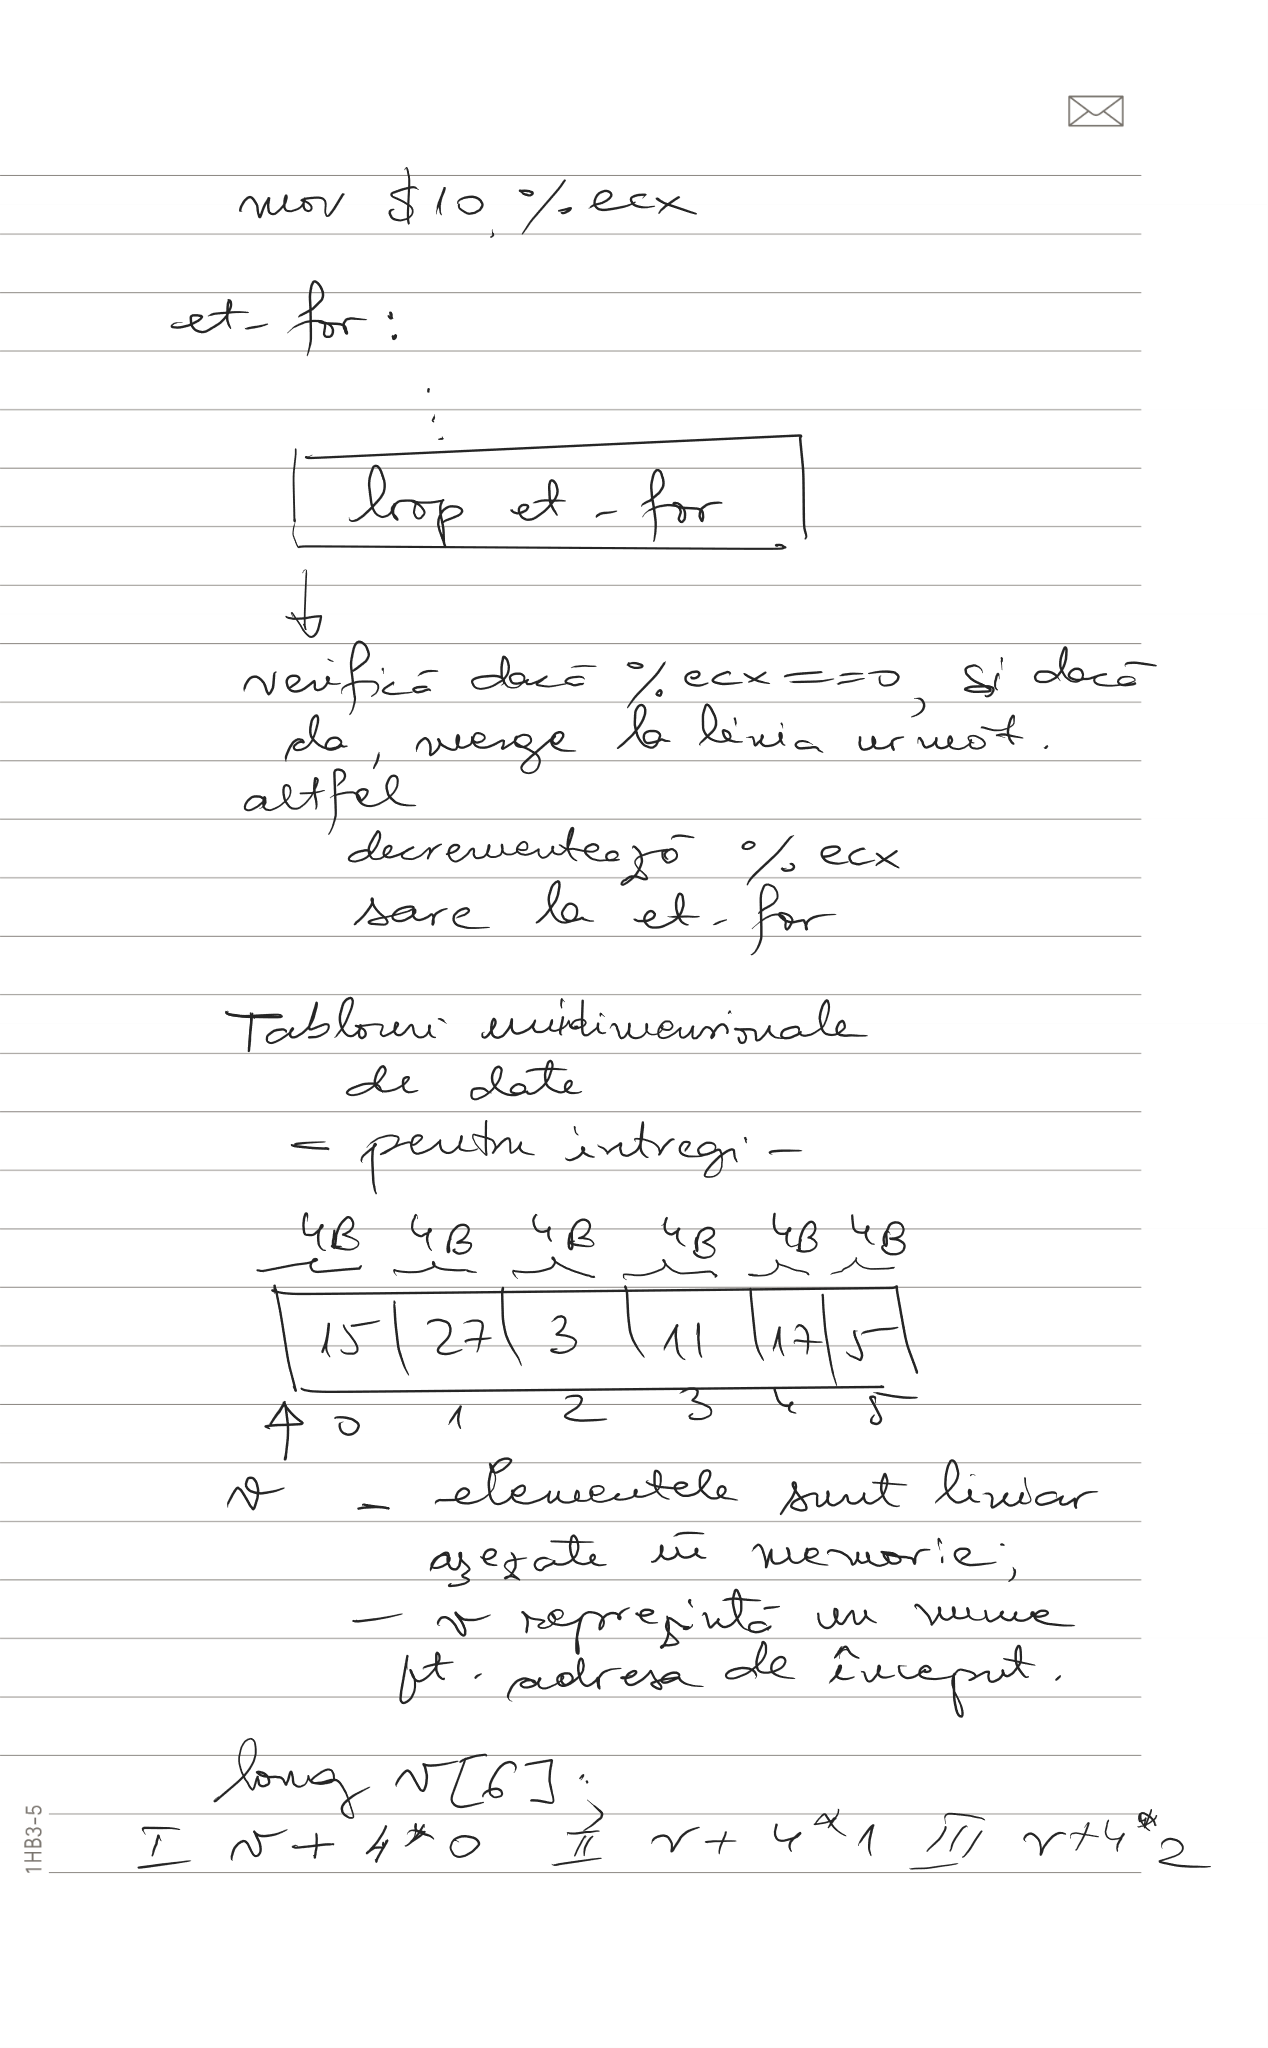 mov $10, %ecx
et_for:
⋮
loop et_for
↓
verifică dacă %ecx == 0, si dacă
da, merge la linia urmat.
altfel
decrementează %ecx
sare la et_for
Tablouri unidimensionale
de date
- pentru intregi -
4B 4B 4B 4B 4B 4B
15 27 3 11 17 5
↑ 0 1 2 3 4 5
v - elementele sunt liniar
așezate în memorie;
- v reprezintă un nume
pt. adresa de început.
long v[6];
I v + 4*0 II v + 4*1 III v+4*2
1HB3-5